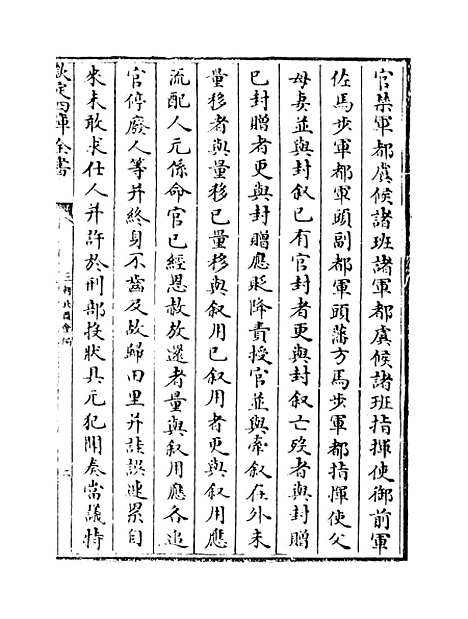 官禁軍都虞候諸班諸軍都虞候諸班指揮使御前軍
佐馬步軍都軍頭副都軍頭藩方馬步軍都指揮使父
母妻並與封叙已有官封者更與封叙亡歿者與封贈
已封贈者更與封贈應貶降責授官並與牽叙在外未
量移者與量移已量移與叙用已叙用者更與叙用應
流配人元係命官已經恩赦放還者量與叙用應各追
官停廢人等并終身不齒及放歸田里并詿誤連累自
來未敢求仕人并許於刑部投狀具元犯聞奏當議特
欽定四庫全書
三朝北盟會編